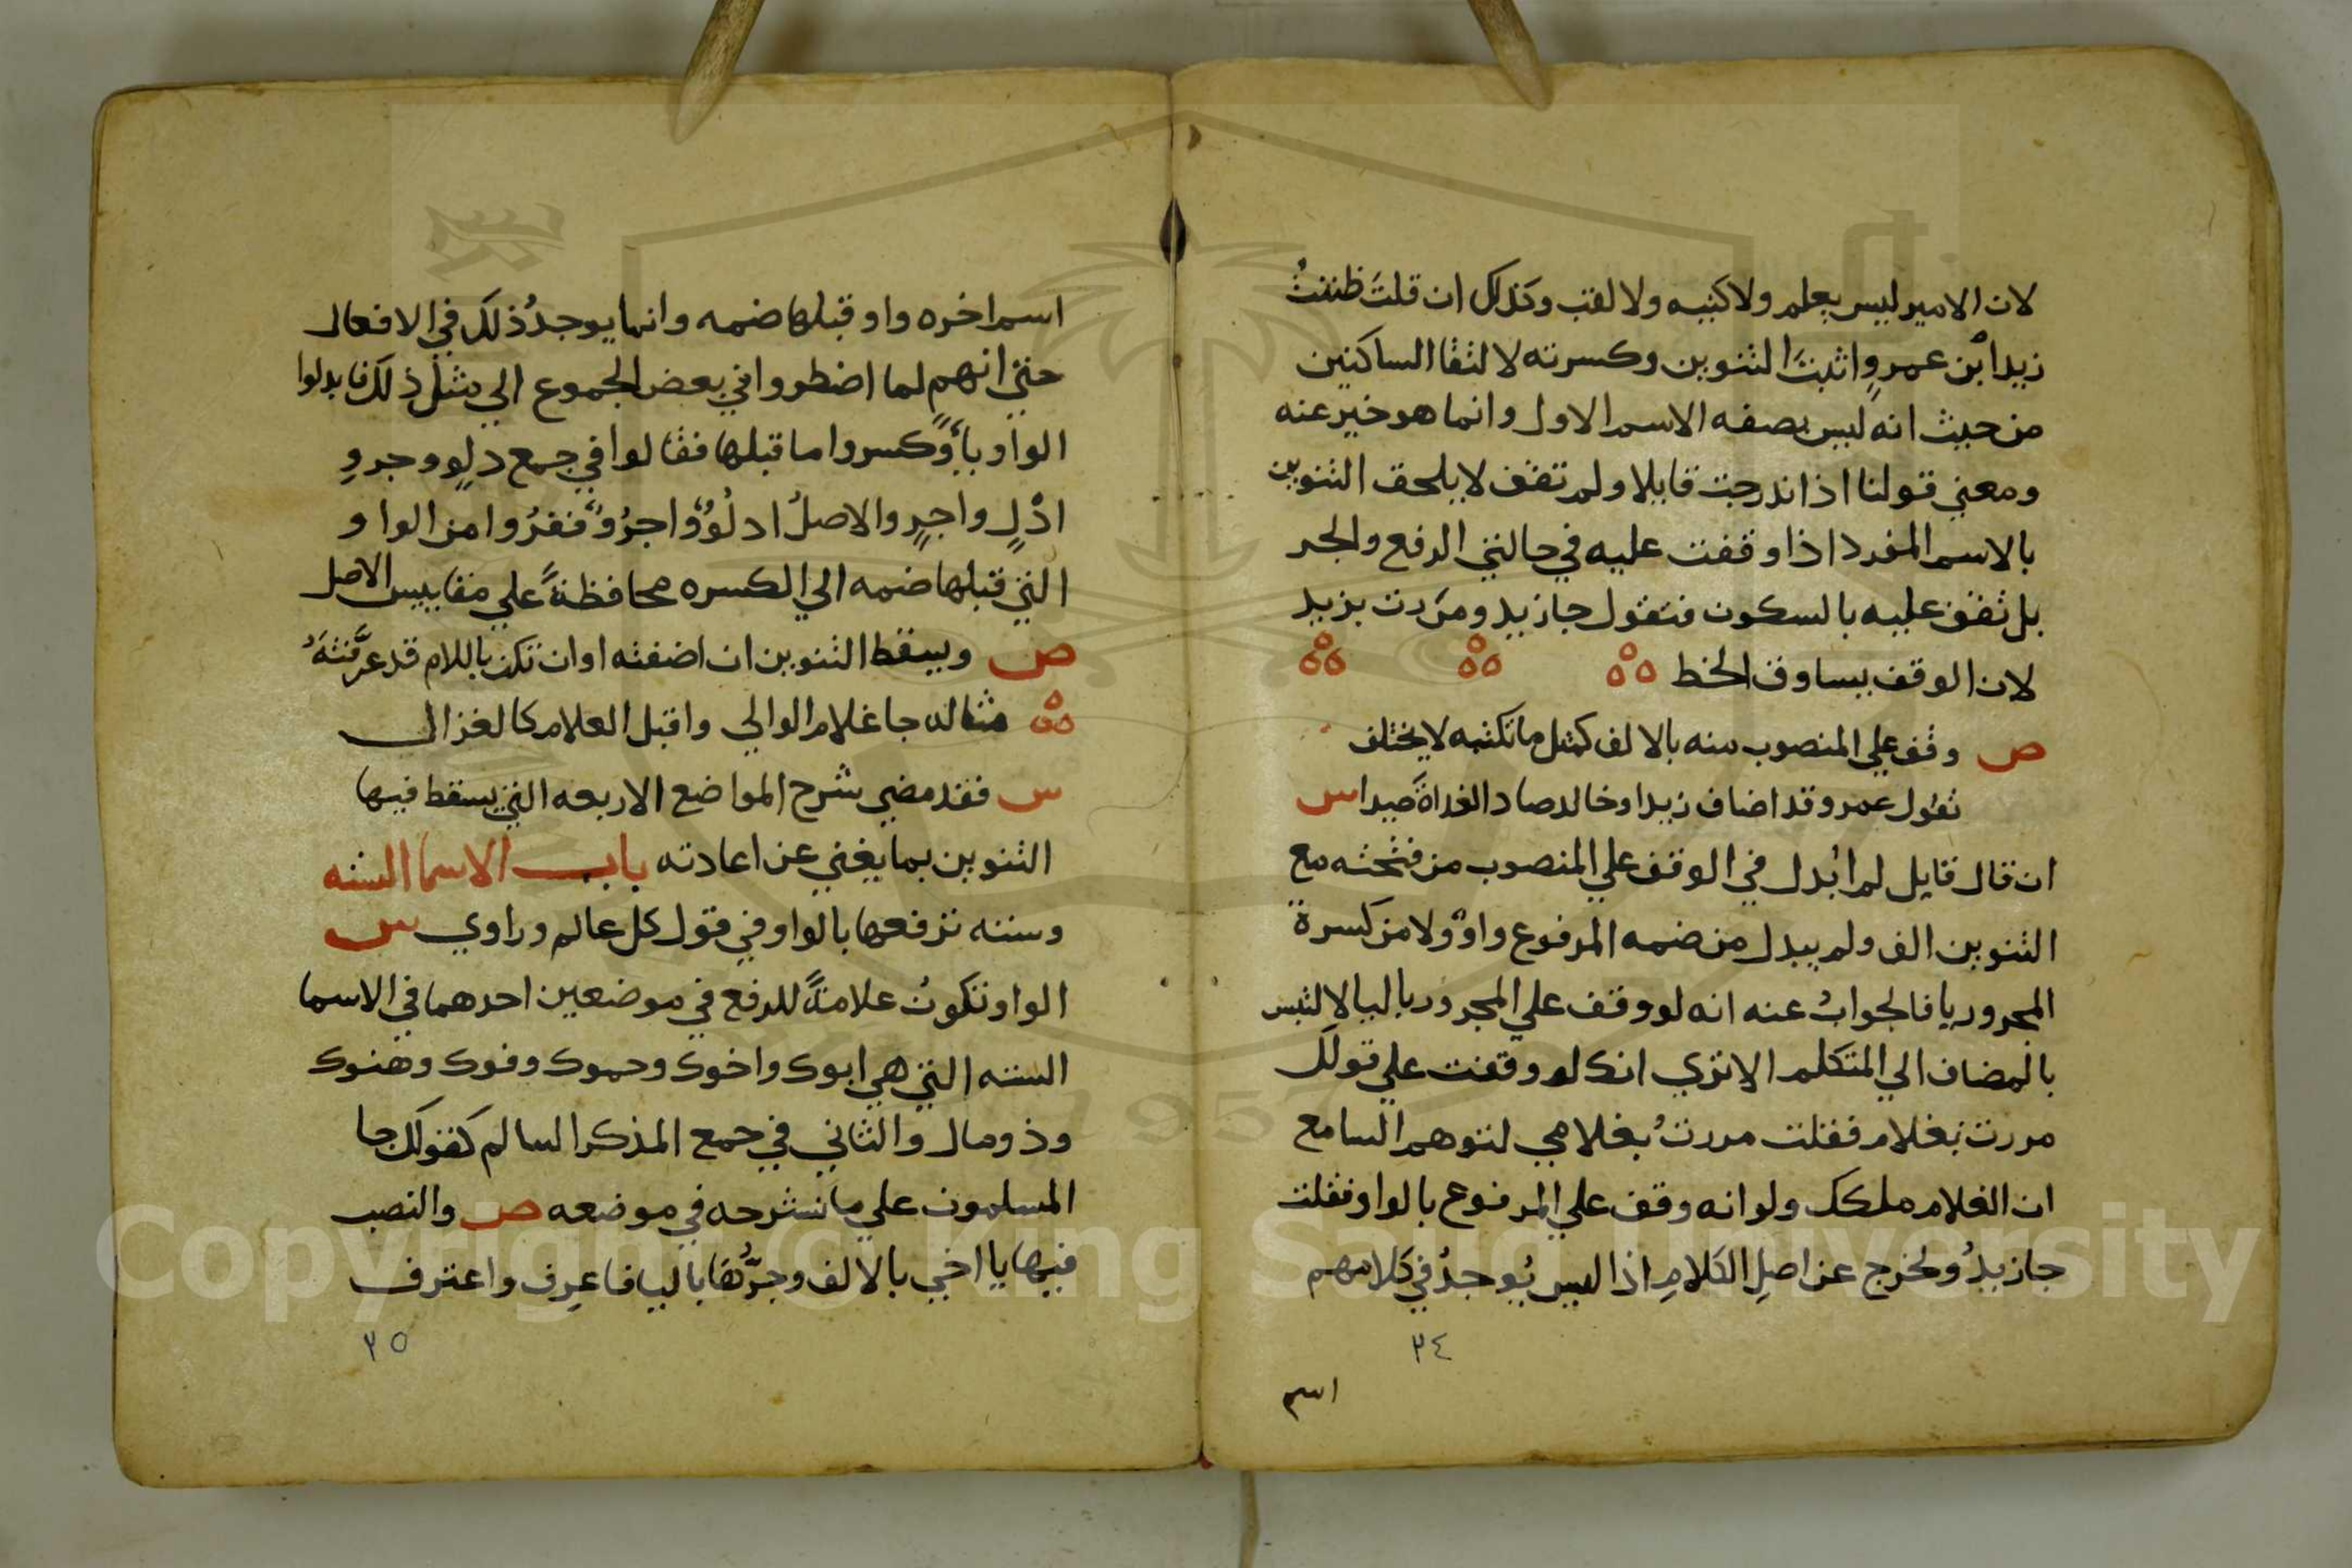 لان الامير ليس بعلم ولا كنيه ولا لقب وكذلك ان قلتَ ظننتُ
زيدا ابْن عمرٍو اثبتَ التنوين وكسرته لالتقا الساكنين
من حيث انه ليس بصفه الاسم الاول وانما هو خبر عنه
ومعني قولنا اذا اندرجت قايلا ولم تقف لا يلحق التنوين
بالاسم المفرد اذا وقفت عليه في حالتي الرفع والجر
بل تقف عليه بالسكون فتقول جا زيد ومررت بزيد
لان الوقف يساوق الخط
ص وقف علي المنصوب منه بالالف كمثل ما تكتبه لا يختلف
تقول عمرو قد اضاف زيدا وخالد صاد الغداةَ صيدا س
ان قال قايل لم ابُدل في الوقف علي المنصوب من فتحته مع
التنوين الف ولم يبدل من ضمه المرفوع واو ولا من كسرة
المجرور يا فالجوابُ عنه انه لو وقف علي المجرور باليا لالتبس
بالمضاف الي المتكلم الا تري انك لو وقفت علي قولك
مررت بغلام فقلت مررتُ بغلامي لتوهم السامع
ان الغلام ملكك ولو انه وقف علي المرفوع بالواو فقلت
جا زيدُو لخرج عن اصلِ الكلامِ اذ اليس يُوجدُ في كلامهم
٣٤
اسم
اسم اخره واو قبلها ضمه وانما يوجدُ ذلك في الافعال
حتي انهم لما اضطروا في بعض الجموع الي مثل ذلك فابدلوا
الواو ياً وكسروا ما قبلها فقالوا في جمع دلوٍ وجروٍ
ادْلٍ واجرٍ والاصلُ ادلُوٌ واجرُوٌ ففرُوا من الواو
التي قبلها ضمه الي الكسره محافظةً علي مقاييس الاصل
ص ويسقط التنوين ان اضفته او ان تكن باللام قد عرَّفتَهُ
مثاله جا غلام الوالي واقبل الغلام كالغزال
س فقد مضي شرح المواضع الاربعه التي يسقط فيها
التنوين بما يغني عن اعادته باب الاسما السته
وسته ترفعها بالواو في قول كل عالم وراوي س
الواو تكونُ علامةً للرفع في موضعين احدهما في الاسما
السته التي هي ابوك واخوك وحموك وفوك وهنوك
وذو مال والثاني في جمع المذكر السالم كقولك جا
المسلمون علي ما نشرحه في موضعه ص والنصب
فيها يا اخي بالالف وجرُّها باليا فاعرِف واعترف
٣٥
Copyright © King Saud University
1957